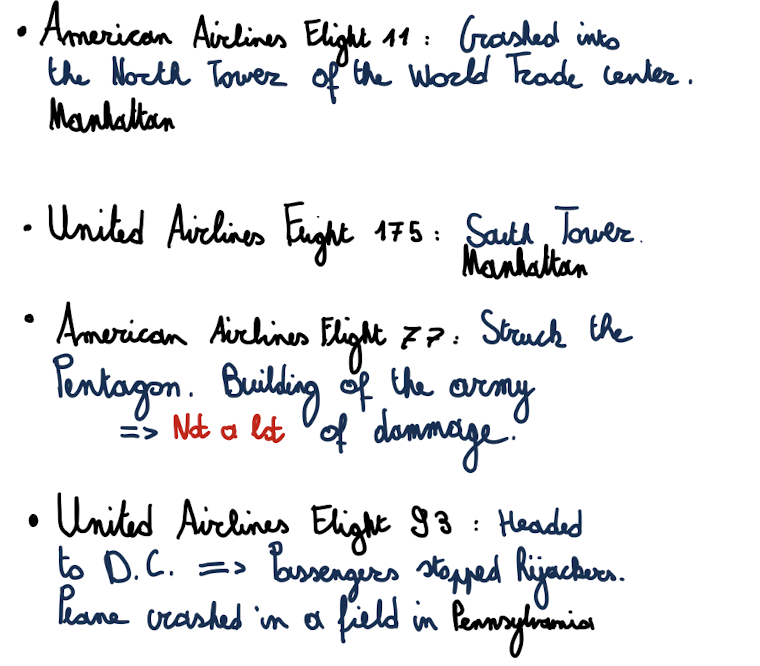 • American Airlines Flight 11 : Crashed into
the North Tower of the World Trade center.
Manhattan
• United Airlines Flight 175 : South Tower.
Manhattan
• American Airlines Flight 77 : Struck the
Pentagon. Building of the army
=> Not a lot of dammage.
• United Airlines Flight 93 : Headed
to D.C. => Passengers stopped hijackers.
Plane crashed in a field in Pennsylvania